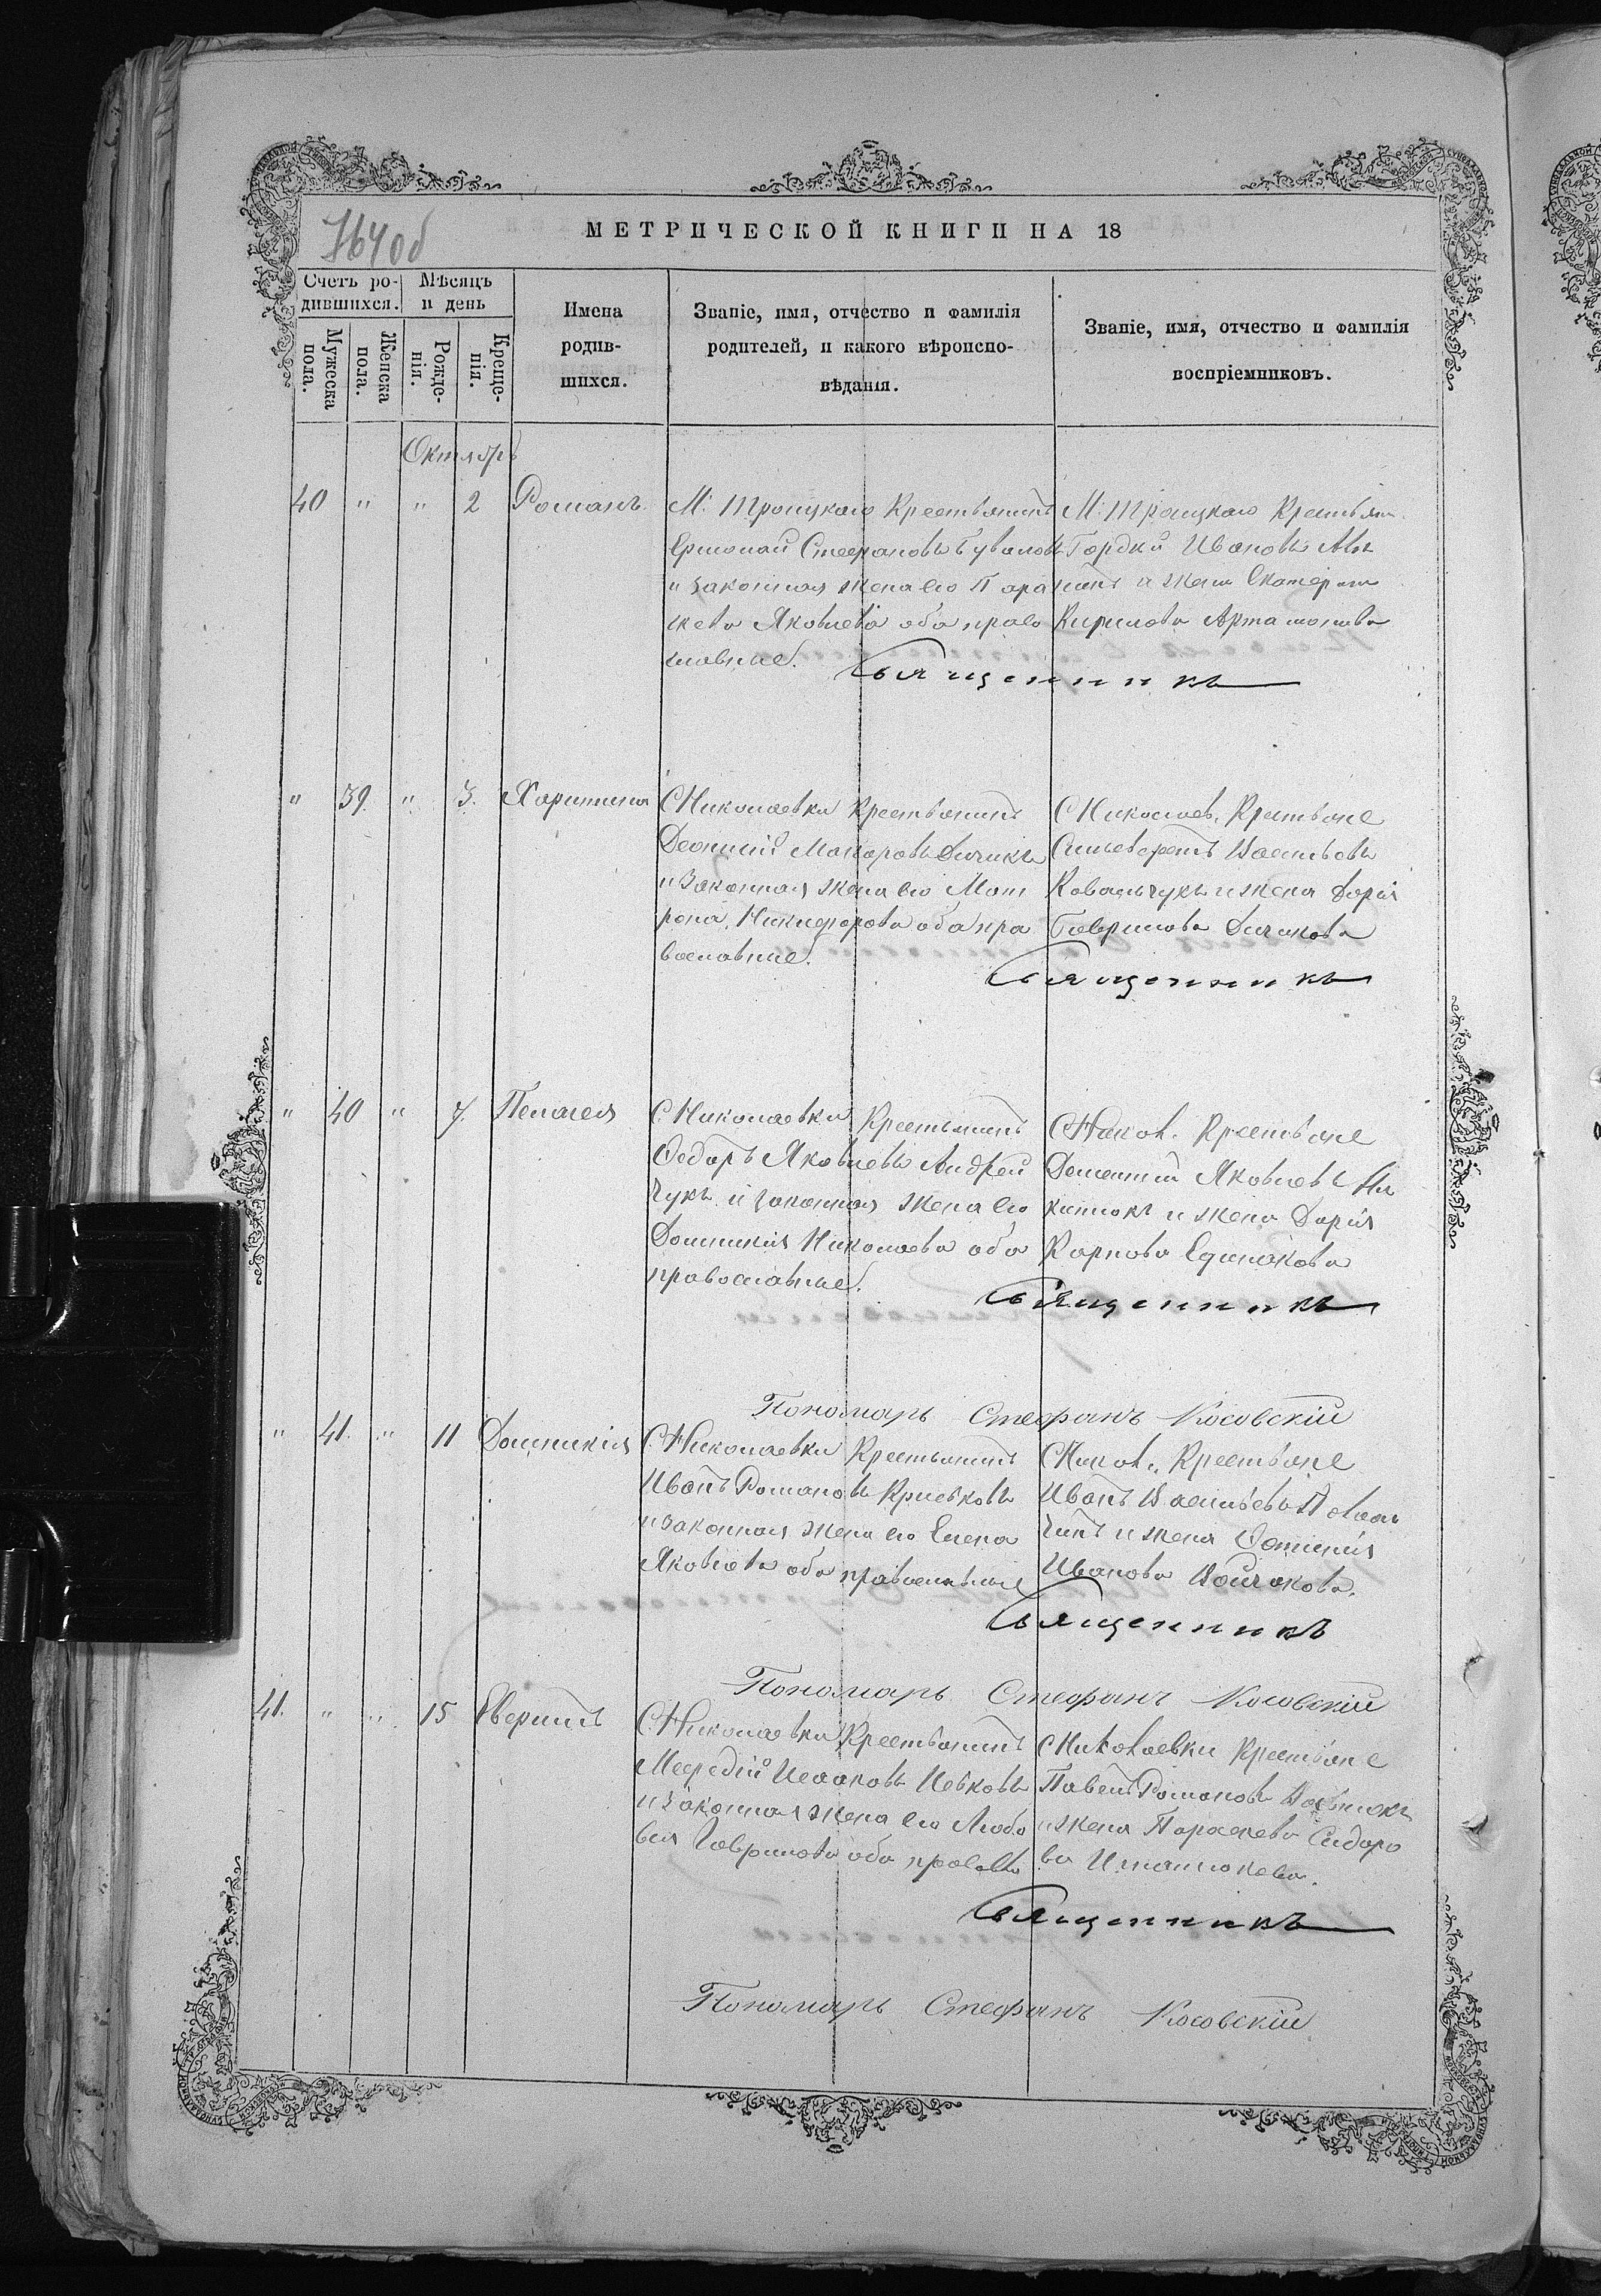 764об
МЕТРИЧЕСКОЙ КНИГИ НА 18
Счетъ ро-
дившихся.
Мѣсяцъ
и день
Мужеска
пола.
Женска
пола.
Рожде-
нія.
Креще-
нія.
Имена
родив-
шихся.
Званіе, имя, отчество и фамилія
родителей, и какого вѣроиспо-
вѣданія.
Званіе, имя, отчество и фамилія
воспріемниковъ.
Октябрь
40 " " 2 Романъ
М: Троицкаго Крестьянинъ
Ермолай Стефановъ
и законная жена его Пара
скева Яковлева оба право
славные.
М: Троицкаго Крестьян
Гордій Ивановъ
и жена Екатерина
Кирилова Артамонова
Священникъ
" 39. " 3. Харитина
С Николаевки Крестьянинъ
Леонтій Макаровъ Дячикъ
и законная жена его Мат
рона Никифорова оба пра
вославные.
С Николаев. Крестьяне
Сильверстъ Васильевъ
Ковальчукъ и жена Дарія
Гаврилова Дячкова
Священникъ
" 40 " 7. Пелагея
С. Николаевки Крестьянинъ
Ѳедоръ Яковлевъ Андрей
чукъ и законная жена его
Домникія Николаева оба
православные.
С Никол. Крестьяне
Дементій Яковлевъ Ни
китюкъ и жена Дарія
Карпова
Священникъ
Пономарь Стефанъ Косовскій
" 41. " 11 Домникія
С. Николаевки Крестьянинъ
Иванъ Романовъ
и законная жена его Елена
Яковлева оба православные
С Никол. Крестьяне
Иванъ Васильевъ
и жена
Иванова
Священникъ
Пономарь Стефанъ Косовскій
41. " " 15
С. Николаевки Крестьянинъ
Меѳодій Исааковъ
и законная жена его Любо
вія Гаврилова оба правосл
С Николаевки Крестьяне
Павелъ Романовъ
и жена Параскева Сидоро
ва
Священникъ
Пономарь Стефанъ Косовскій